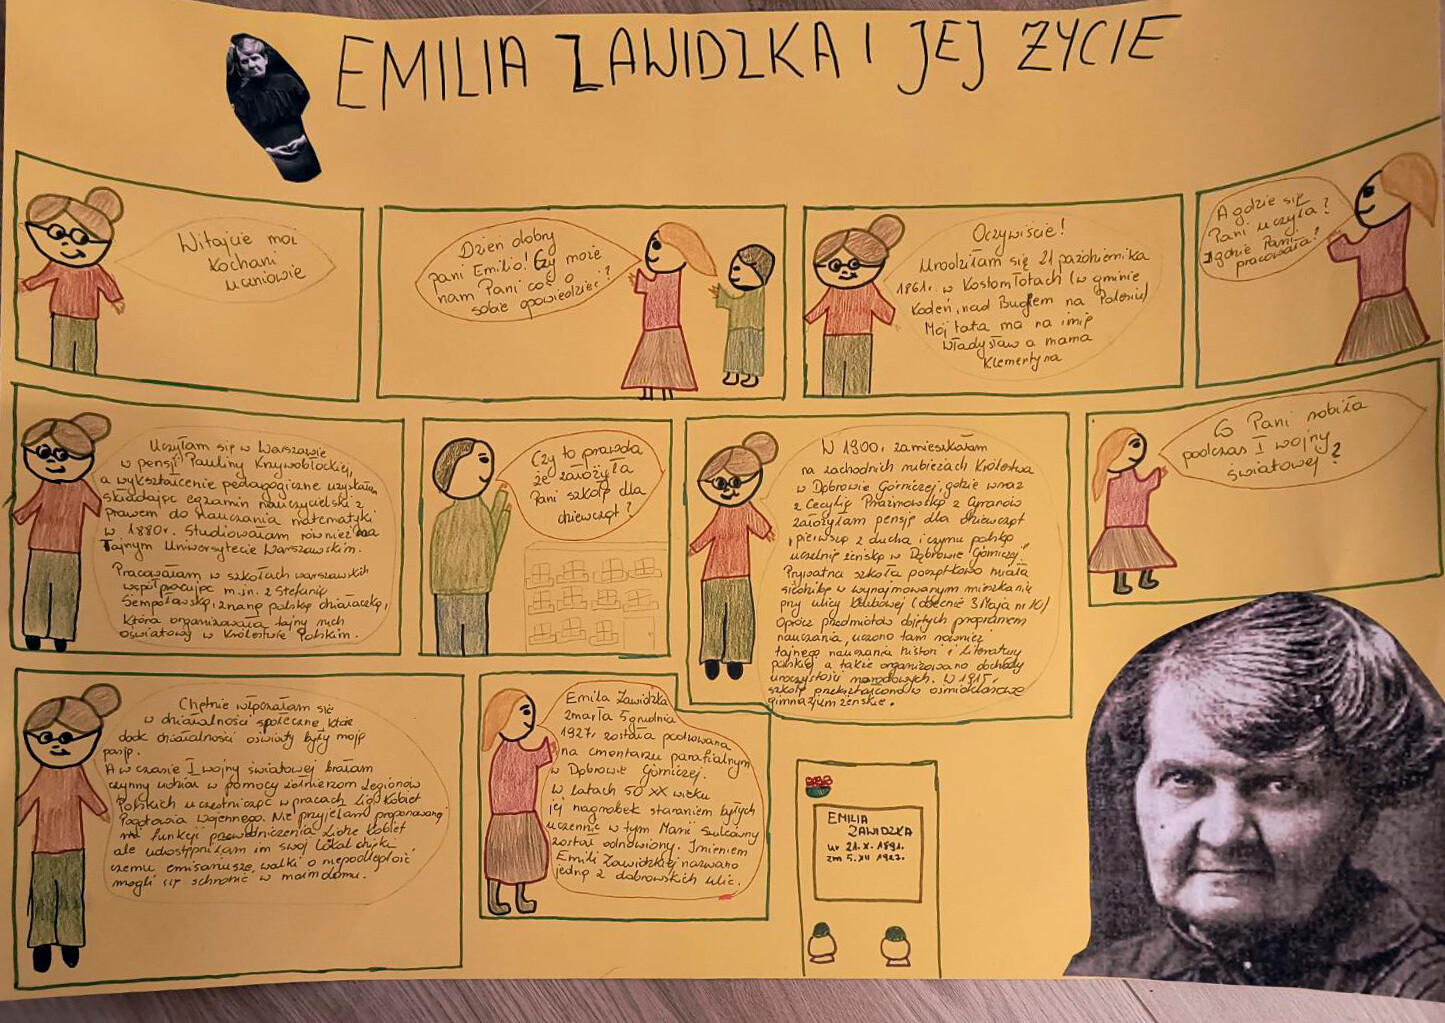 EMILIA ZAWIDZKA I JEJ ŻYCIE
Witajcie moi
kochani
uczniowie
Dzień dobry
pani Emilio! Czy może
nam Pani coś o
sobie opowiedzieć?
Oczywiście!
Urodziłam się 21 października
1861r. w Kostomłotach (w gminie
Kodeń, nad Bugiem na Polesiu)
Mój tata ma na imię
Władysław a mama
Klementyna
A gdzie się
Pani uczyła?
I gdzie Pani
pracowała?
Uczyłam się w Warszawie
w pensji Pauliny Krzywobłockiej,
a wykształcenie pedagogiczne uzyskałam
składając egzamin nauczycielski z
prawem do nauczania matematyki
w 1880r. Studiowałam również na
Tajnym Uniwersytecie Warszawskim.
Pracowałam w szkołach warszawskich
współpracując m.in. z Stefanią
Sempołowską, znaną polską działaczką,
która organizowała tajny ruch
oświatowy w Królestwie Polskim.
Czy to prawda
że założyła
Pani szkołę dla
dziewcząt?
W 1900r. zamieszkałam
na zachodnich rubieżach Królestwa
w Dąbrowie Górniczej, gdzie wraz
z Cecylią Prażmowską z Gzranów
założyłam pensję dla dziewcząt
„pierwszą z ducha i czynu polską
uczelnię żeńską w Dąbrowie Górniczej”
Prywatna szkoła początkowo miała
siedzibę w wynajmowanym mieszkaniu
przy ulicy Klubowej (obecnie 3 Maja nr 10)
Oprócz przedmiotów objętych programem
nauczania, uczono tam również
tajnego nauczania histori i literatury
polskiej a także organizowano obchody
uroczystości narodowych. W 1915r.
szkołę przekształcono w ośmioklasowe
gimnazjum żeńskie.
Co Pani robiła
podczas I wojny
światowej?
Chętnie włączałam się
w działalności społeczne, które
obok działalności oświaty były moją
pasją.
A w czasie I wojny światowej brałam
czynny udział w pomocy żołnierzom Legionów
Polskich uczestnicząc w pracach Ligi Kobiet
Pogotowia Wojennego. Nie przyjęłam proponowanej
mi funkcji przewodniczenia Lidze Kobiet
ale udostępniłam im swój lokal dzięki
czemu emisariusze walki o niepodległość
mogli się schronić w moim domu.
Emilia Zawidzka
zmarła 5 grudnia
1927r została pochowana
na cmentarzu parafialnym
w Dąbrowie Górniczej.
W latach 50 XX wieku
jej nagrobek staraniem byłych
uczennic w tym Marii Sulcówny
został odnowiony. Imieniem
Emilii Zawidzkiej nazwano
jedną z dąbrowskich ulic.
EMILIA
ZAWIDZKA
ur 21. X. 1891.
zm 5. XII 1927.